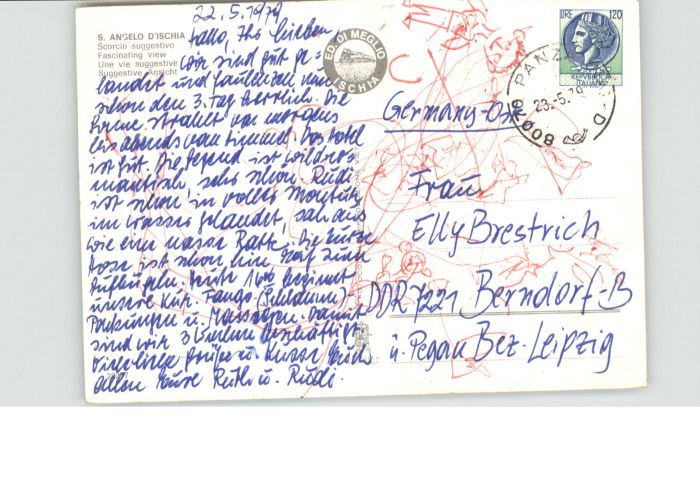 22.5.1979
S. ANGELO D'ISCHIA
Scorcio suggestivo
Fascinating view
Une vie suggestive
Suggestive Ansicht
Hallo, Ihr Lieben
Wir sind gut ge-
landet und faulenzen nun
schon den 3. Tag herrlich. Die
Sonne strahlt von morgens
bis abends vom Himmel. Das Hotel
ist gut. Die Gegend ist wildro-
mantisch, sehr schön. Rudi
ist schon in voller Montur
im Wasser gelandet, sah aus
wie eine nasse Ratte. Die kurze
Hose ist schon hin
Aufbügeln. Heute 16°° beginnt
unsere Kur. Fango-(Schlamm)-
Packungen u. Massagen. Damit
sind wir 3 beschäftigt
Viele liebe Grüße u. Küsse Euch
allen Eure Ruth u. Rudi.
ED. DI MEGLIO
ISCHIA
LIRE 120
REPVBBLICA
ITALIANA
PANZA
23.-5.79
80070
Germany-Ost
Frau
Elly Brestrich
DDR 7221 Berndorf-B
ü. Pegau Bez. Leipzig